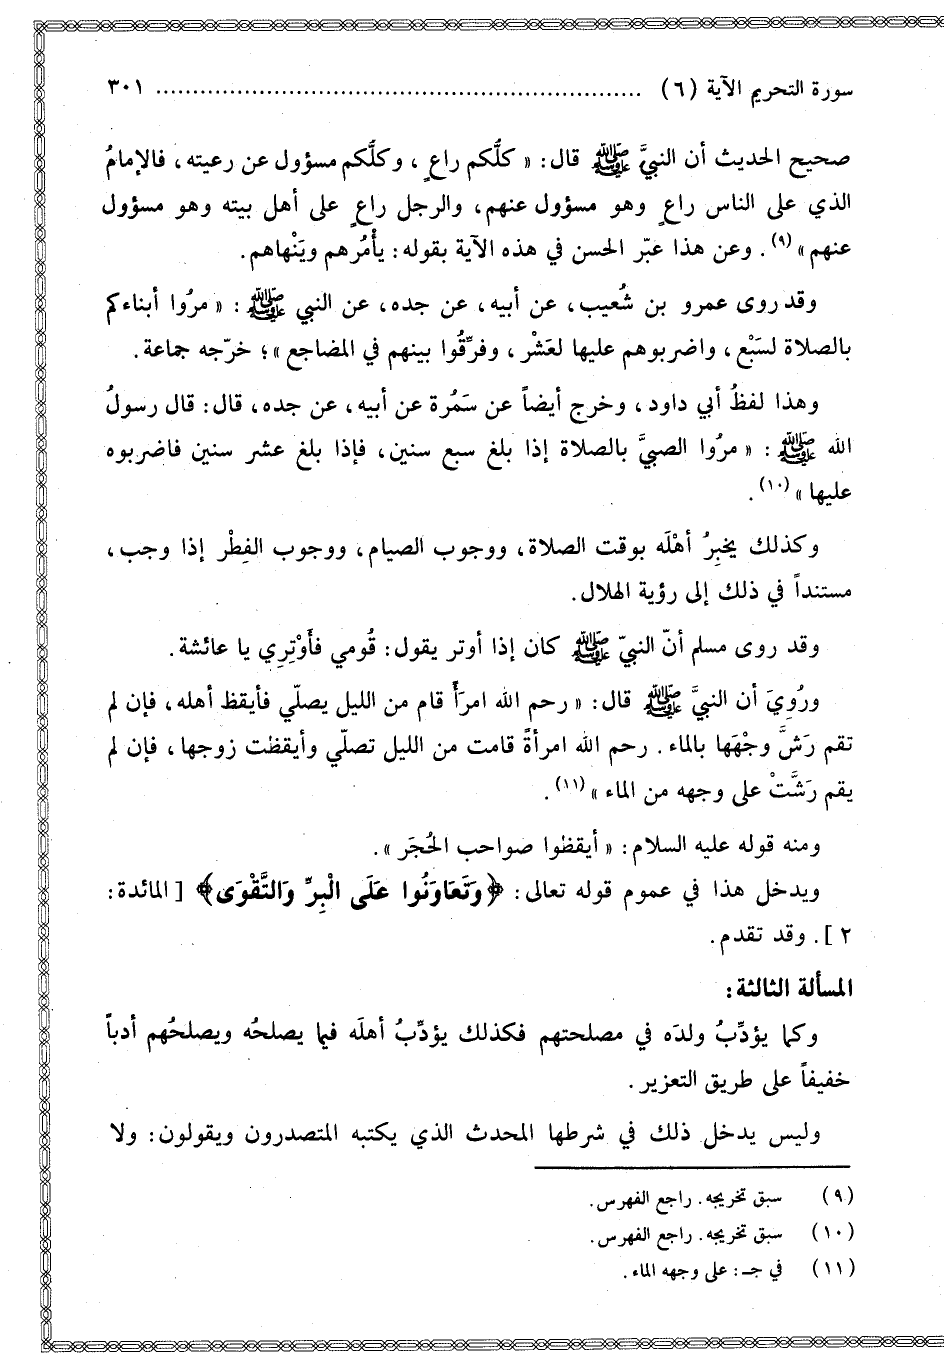 سورة التحريم الآية (٦) ................................................................. ٣٠١
صحيح الحديث أن النبيَّ ﷺ قال: « كلُّكم راعٍ، وكلُّكم مسؤول عن رعيته، فالإمامُ
الذي على الناس راعٍ وهو مسؤول عنهم، والرجل راعٍ على أهل بيته وهو مسؤول
عنهم »(٩). وعن هذا عبّر الحسن في هذه الآية بقوله: يأْمُرهم ويَنْهاهم.
وقد روى عمرو بن شُعيب، عن أبيه، عن جده، عن النبي ﷺ: « مرُوا أبناءكم
بالصلاة لسَبْع، واضربوهم عليها لعَشْر، وفرِّقُوا بينهم في المضاجع »؛ خرّجه جماعة.
وهذا لفظُ أبي داود، وخرج أيضاً عن سَمُرة عن أبيه، عن جده، قال: قال رسولُ
الله ﷺ: « مرُوا الصبيَّ بالصلاة إذا بلغ سبع سنين، فإذا بلغ عشر سنين فاضربوه
عليها »(١٠).
وكذلك يخبِرُ أهْلَه بوقت الصلاة، ووجوب الصيام، ووجوب الفِطْر إذا وجب،
مستنداً في ذلك إلى رؤية الهلال.
وقد روى مسلم أنّ النبيّ ﷺ كان إذا أوتر يقول: قُومي فأَوْتِرِي يا عائشة.
ورُوِيَ أن النبيَّ ﷺ قال: « رحم الله امرَأً قام من الليل يصلّي فأيقظ أهله، فإن لم
تقم رَشَّ وجْهَهَا بالماء. رحم الله امرأةً قامت من الليل تصلّي وأيقظت زوجها، فإن لم
يقم رَشَّتْ على وجهه من الماء »(١١).
ومنه قوله عليه السلام: « أيقظوا صواحب الحُجَر ».
ويدخل هذا في عموم قوله تعالى: ﴿وَتَعَاوَنُوا عَلَى الْبِرِّ وَالتَّقْوَى﴾ [ المائدة:
٢ ]. وقد تقدم.
المسألة الثالثة:
وكما يؤدِّبُ ولدَه في مصلحتهم فكذلك يؤدِّبُ أهلَه فيما يصلحُه ويصلحُهم أدباً
خفيفاً على طريق التعزير.
وليس يدخل ذلك في شرطها المحدث الذي يكتبه المتصدرون ويقولون: ولا
(٩) سبق تخريجه. راجع الفهرس.
(١٠) سبق تخريجه. راجع الفهرس.
(١١) في جـ: على وجهه الماء.